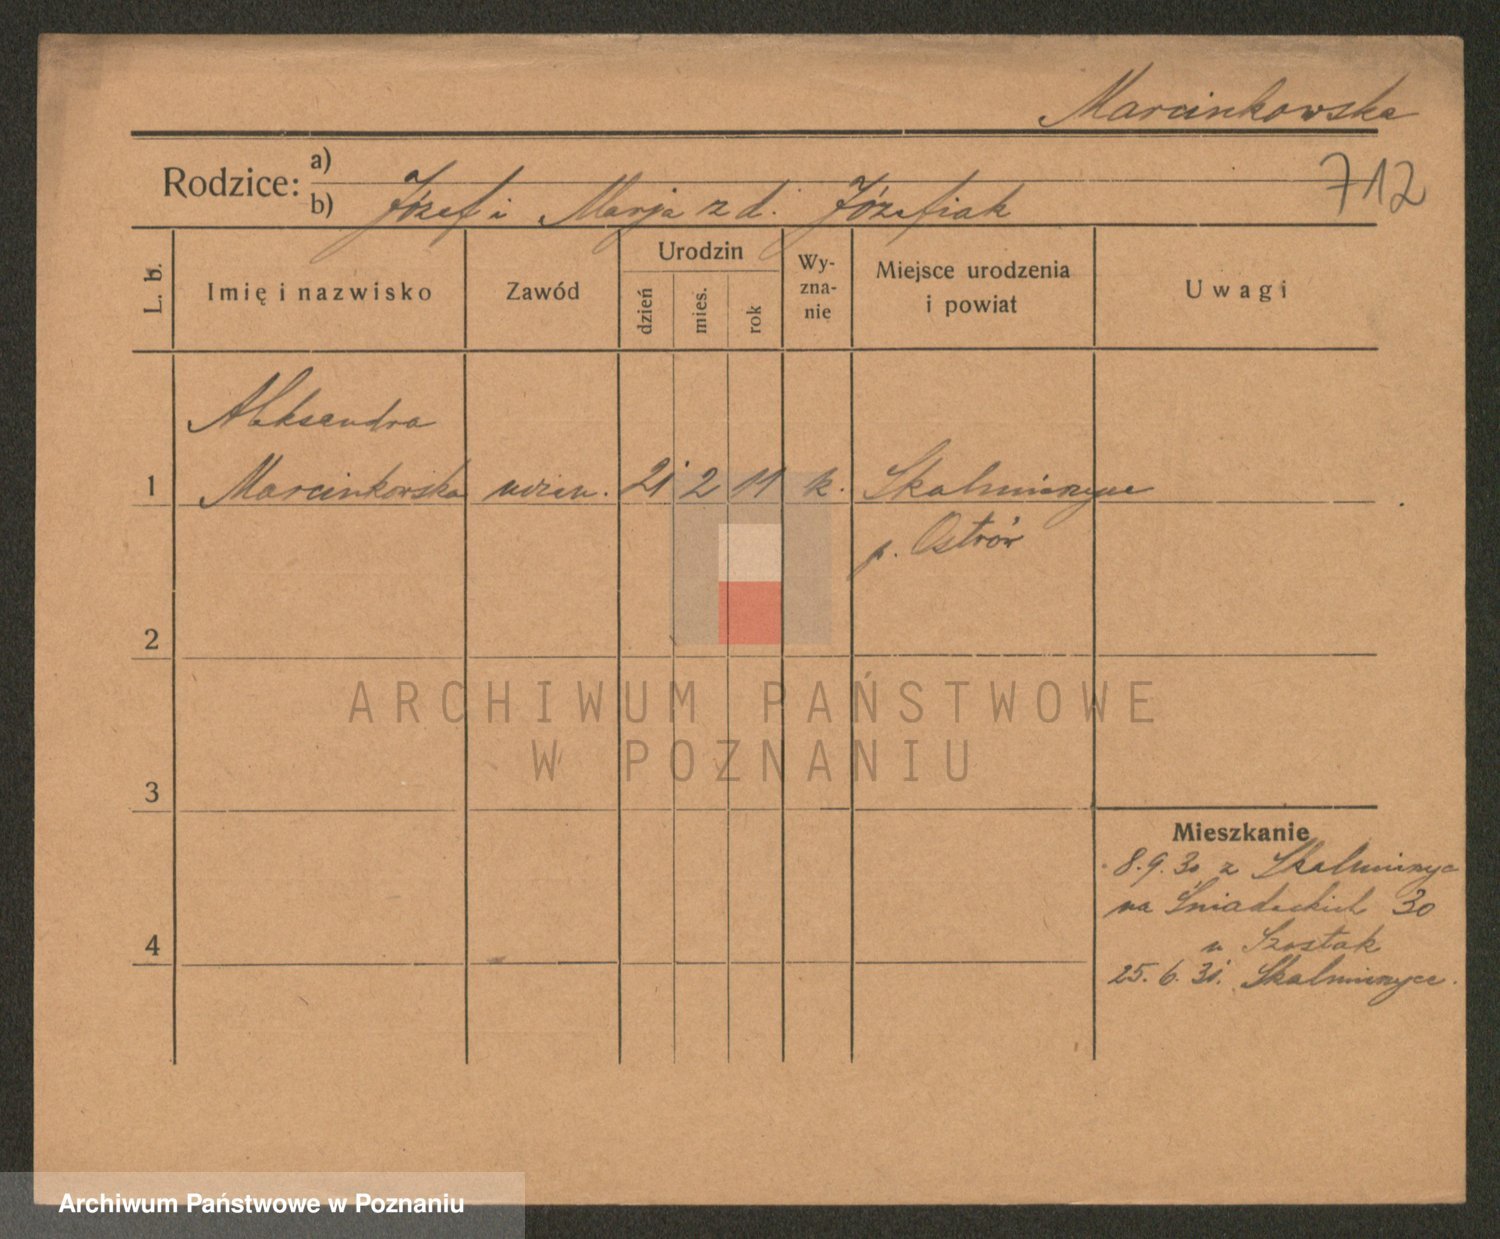 Marcinkowska
712
Rodzice: a)
b) Józef i Marja z d. Józefiak
L. b.
Imię i nazwisko
Zawód
Urodzin
dzień
mies.
rok
Wy-
zna-
nie
Miejsce urodzenia
i powiat
Uwagi
Aleksandra
1 Marcinkowska uczen. 21 2 11 k. Skalmierzyce
p. Ostrów
2
3
4
Mieszkanie
8.9.30 z Skalmierzyc
na Śniadeckich 30
u Szostak
25.6.31. Skalmierzyce.
ARCHIWUM PAŃSTWOWE
W POZNANIU
Archiwum Państwowe w Poznaniu